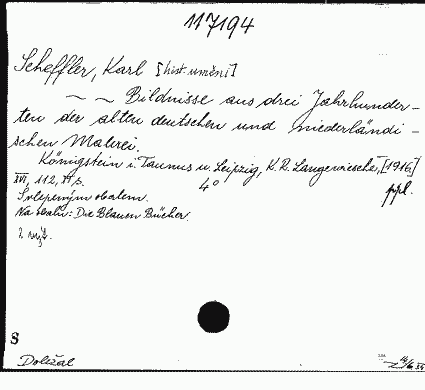 117194
Scheffler, Karl [hist. umění]
~ ~ Bildnisse aus drei Jahrhunder-
ten der alten deutschen und niederländi-
schen Malerei.
Königstein i. Taunus u. Leipzig, K. R. Langewiesche, [1916]
XVI, 112, s. 4° ppl.
S vlepeným obalem.
Na obalu: Die Blauen Bücher.
S
Doležal